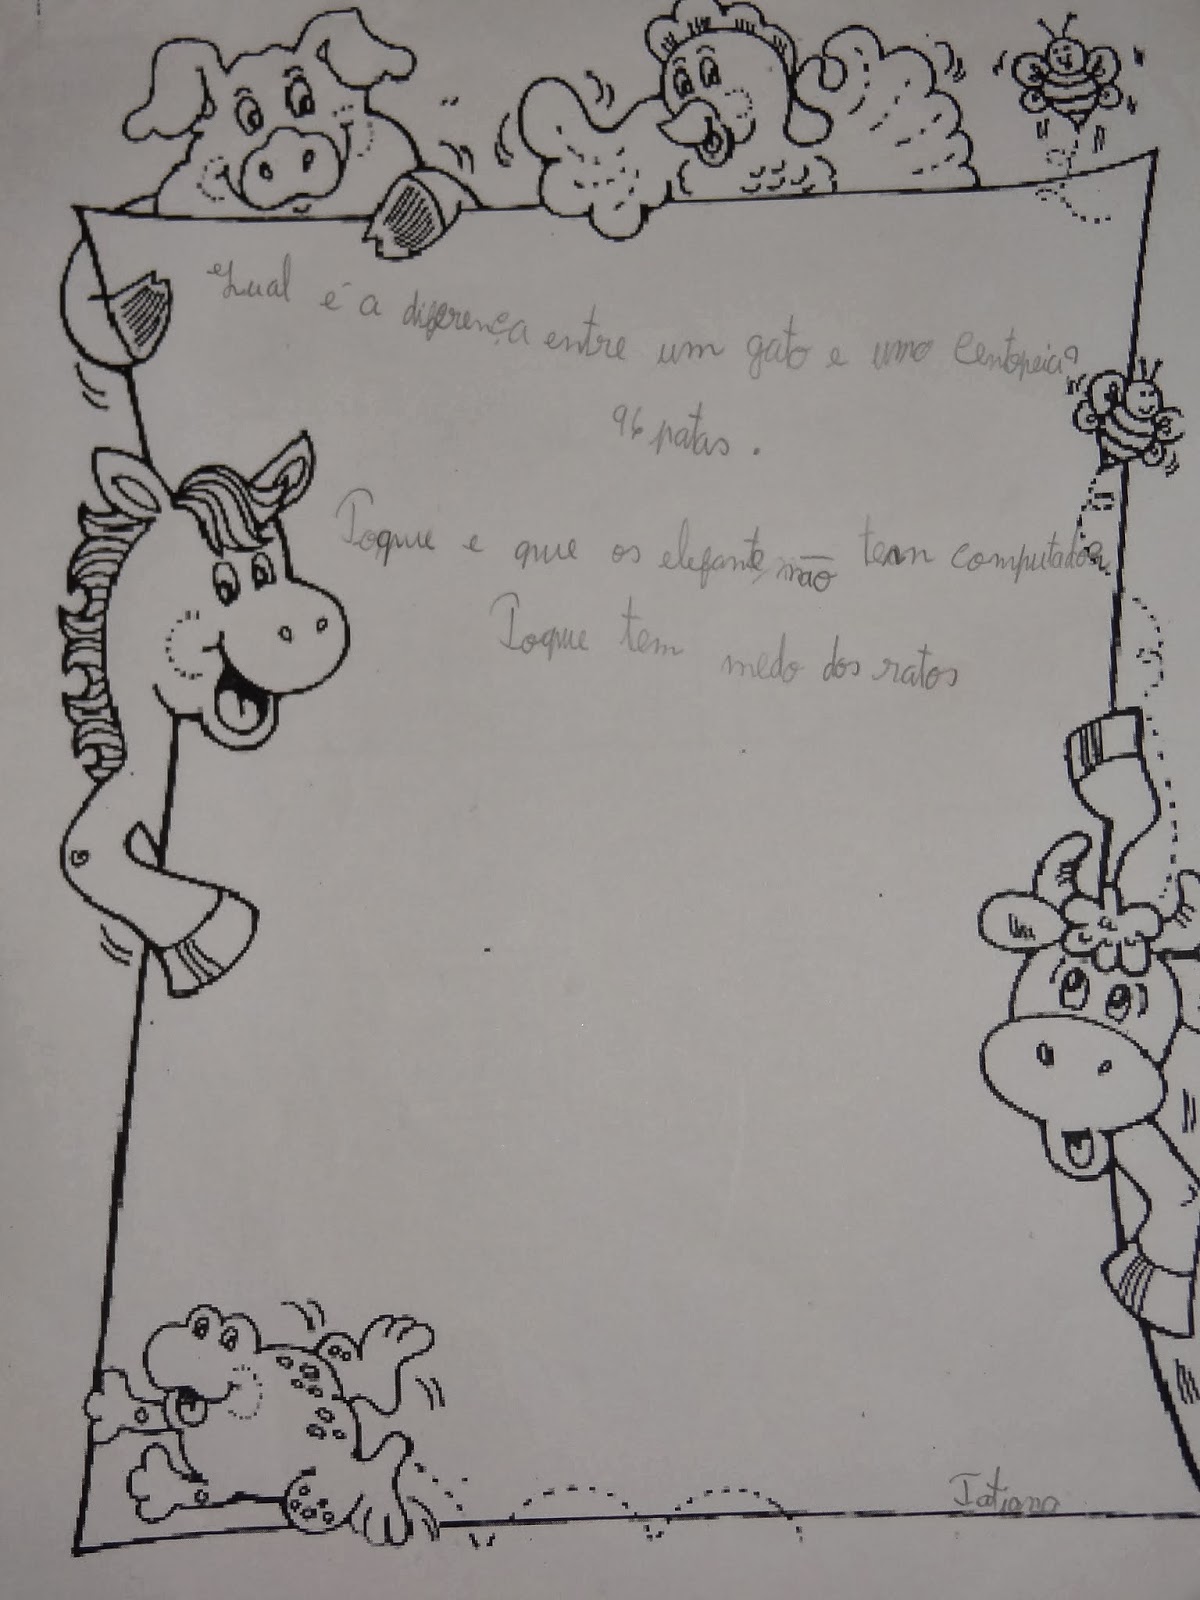 Qual é a diferença entre um gato e uma centopeia?
96 patas.
Poque e que os elefante não tem computador
Poque tem medo dos ratos
Tatiana